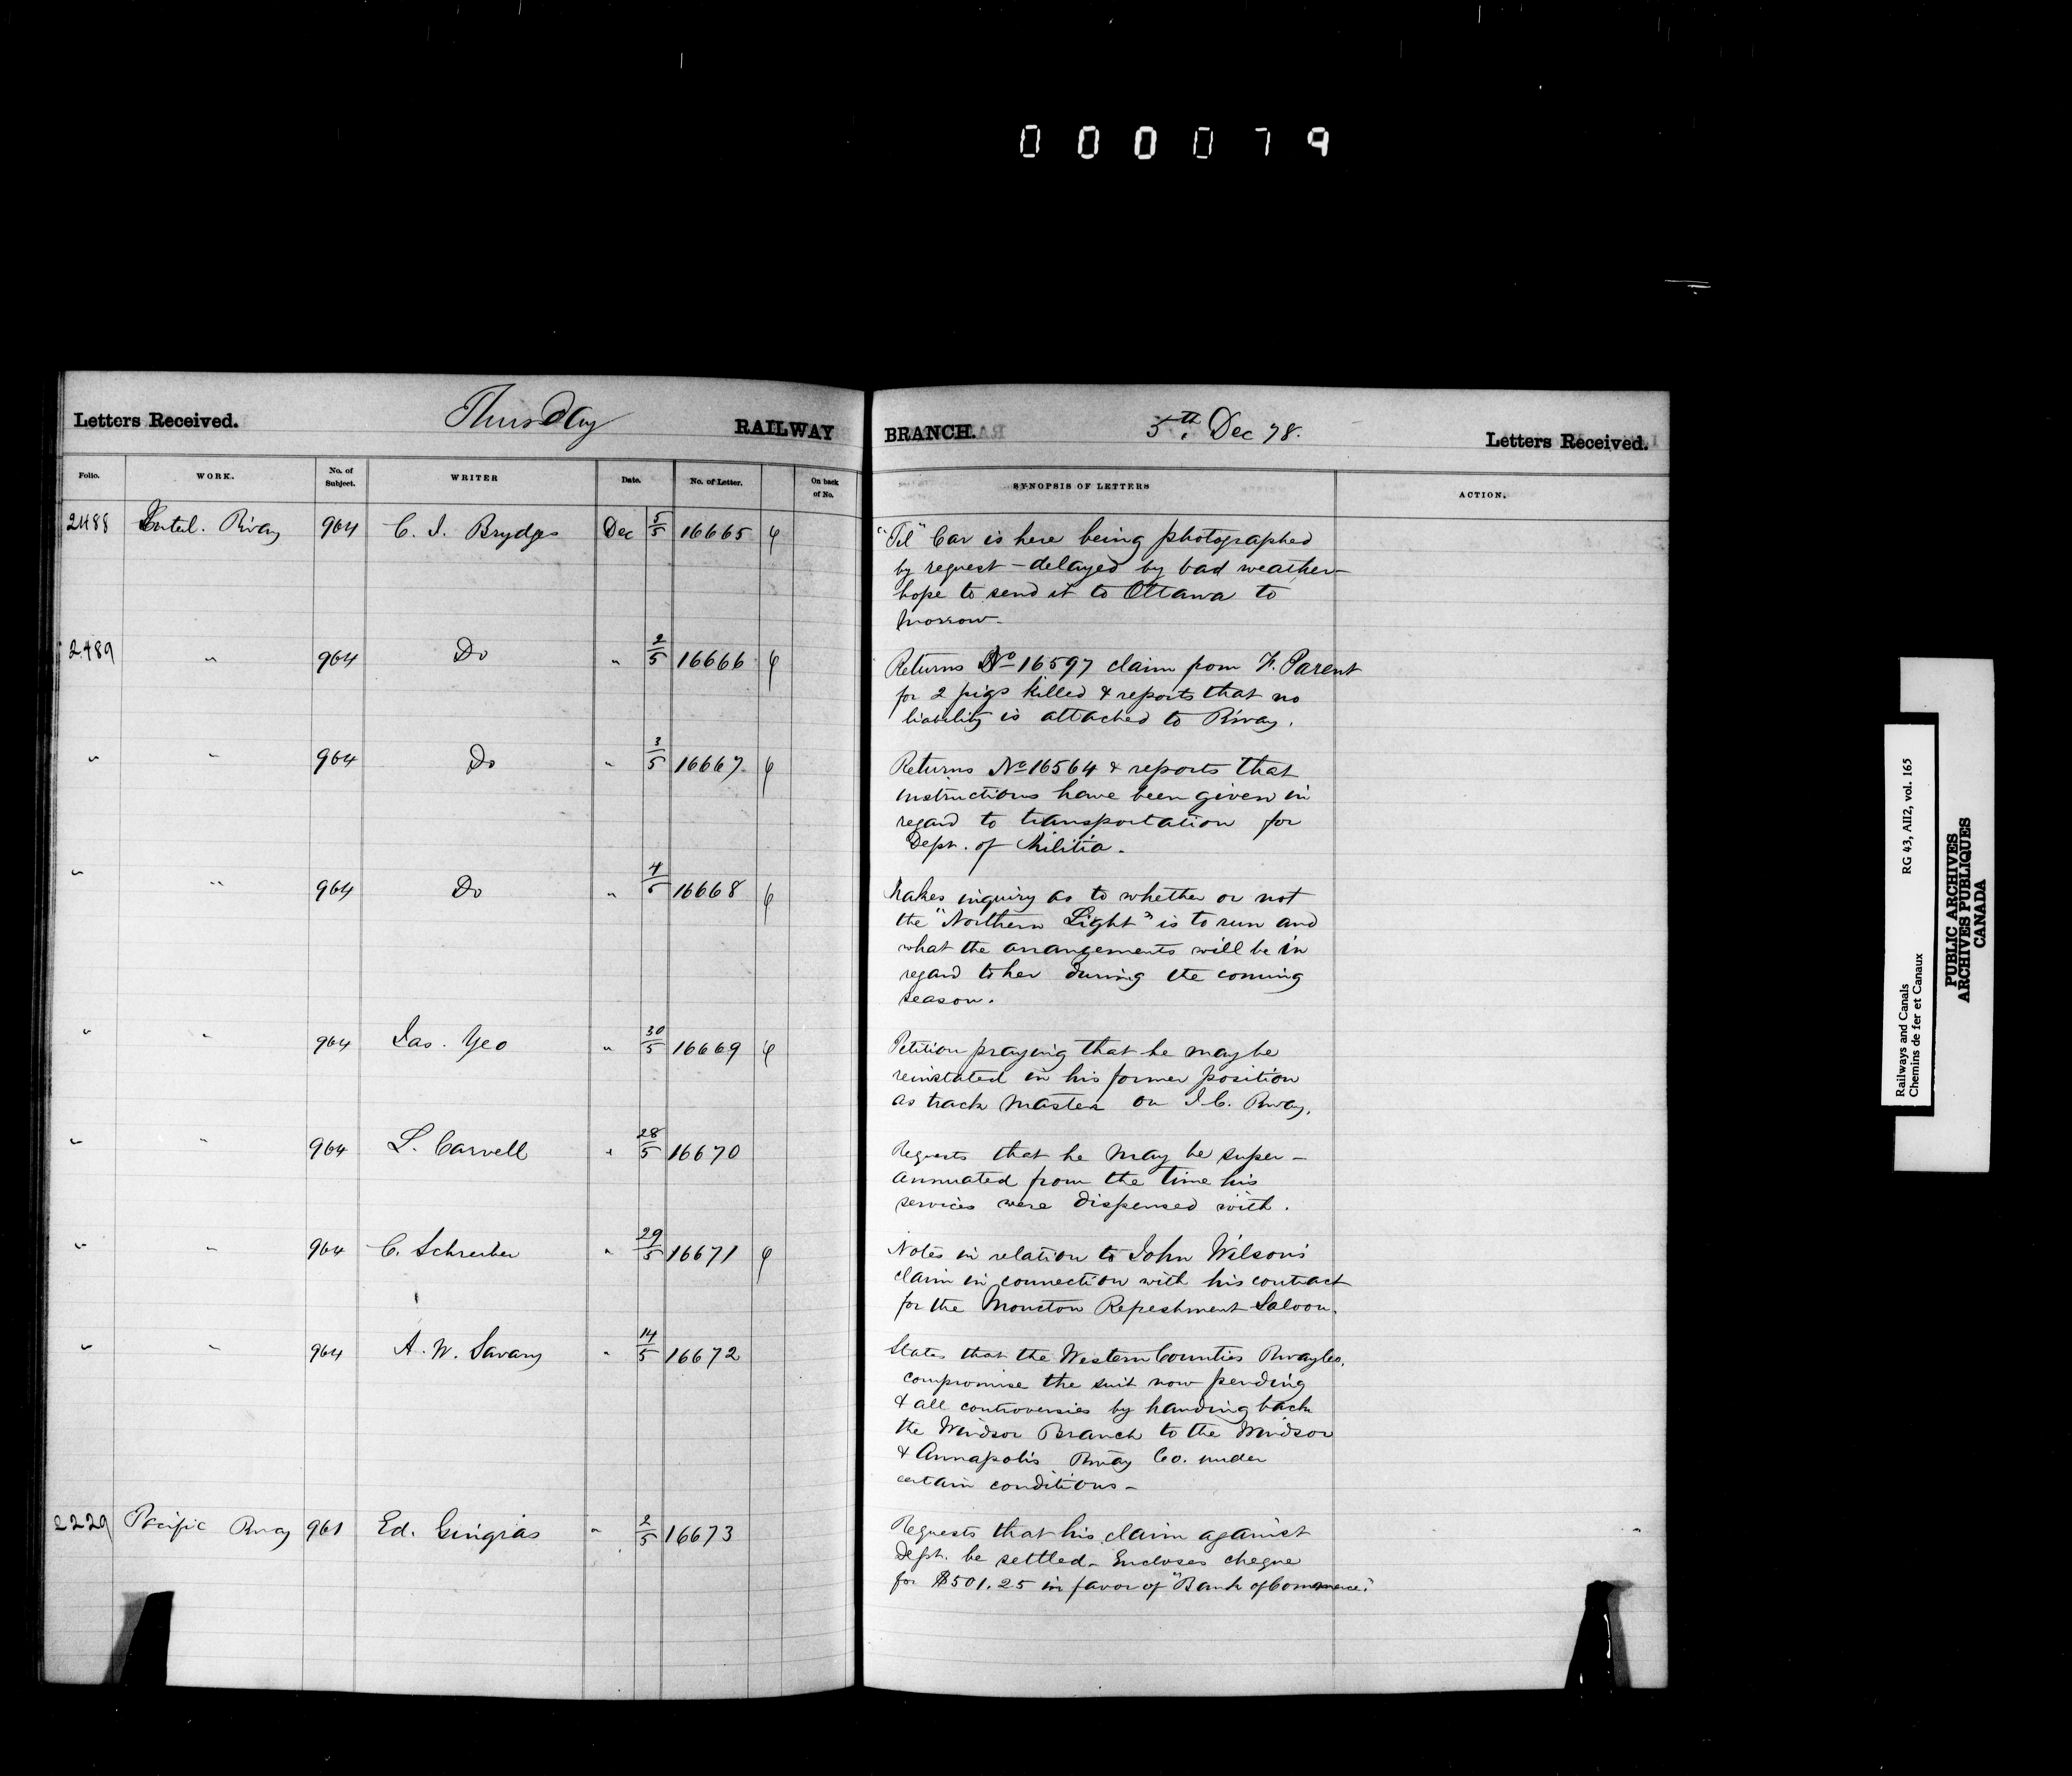 000079
Letters Received. Thursday RAILWAY BRANCH. 5th. Dec 78. Letters Received.
Folio. WORK. No. of Subject. WRITER Date. No. of Letter. On back of No. SYNOPSIS OF LETTERS ACTION.
2488 Intcl. Rway 964 C. J. Brydges Dec 5/5 16665 "Tel" Car is here being photographed
by request - delayed by bad weather -
hope to send it to Ottawa to
morrow -
2489 " 964 Do " 2/5 16666 Returns No 16597 claim from F. Parent
for 2 pigs killed & reports that no
liability is attached to Rway.
" " 964 Do " 3/5 16667 Returns No 16564 & reports that
instructions have been given in
regard to transportation for
Dept. of Militia.
" " 964 Do " 4/5 16668 Makes inquiry as to whether or not
the "Northern Light" is to run and
what the arrangements will be in
regard to her during the coming
season.
" " 964 Jas. Yeo " 30/5 16669 Petition praying that he may be
reinstated in his former position
as track master on I.C. Rway.
" " 964 L. Carvell " 28/5 16670 Requests that he may be super -
annuated from the time his
services were dispensed with.
" " 964 C. Schreiber " 29/5 16671 Notes in relation to John Wilson's
claim in connection with his contract
for the Moncton Refreshment Saloon.
" " 964 A. W. Savary " 14/5 16672 States that the Western Counties Rway Co.
compromise the suit now pending
& all controversies by handing back
the Windsor Branch to the Windsor
& Annapolis Rway Co. under
certain conditions -
2229 Pacific Rway 961 Ed. Gingras " 2/5 16673 Requests that his claim against
Dept. be settled - Encloses cheque
for $501.25 in favor of "Bank of Commerce."
Railways and Canals RG 43, AII2, vol. 165
Chemins de fer et Canaux
PUBLIC ARCHIVES
ARCHIVES PUBLIQUES
CANADA